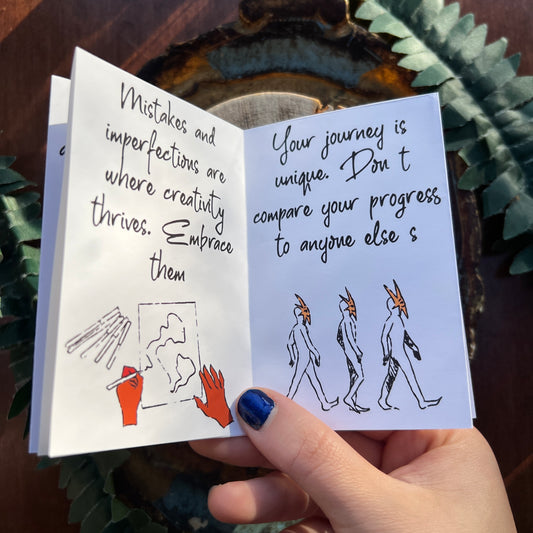 Mistakes and
imperfections are
where creativity
thrives. Embrace
them
Your journey is
unique. Don t
compare your progress
to anyone else s